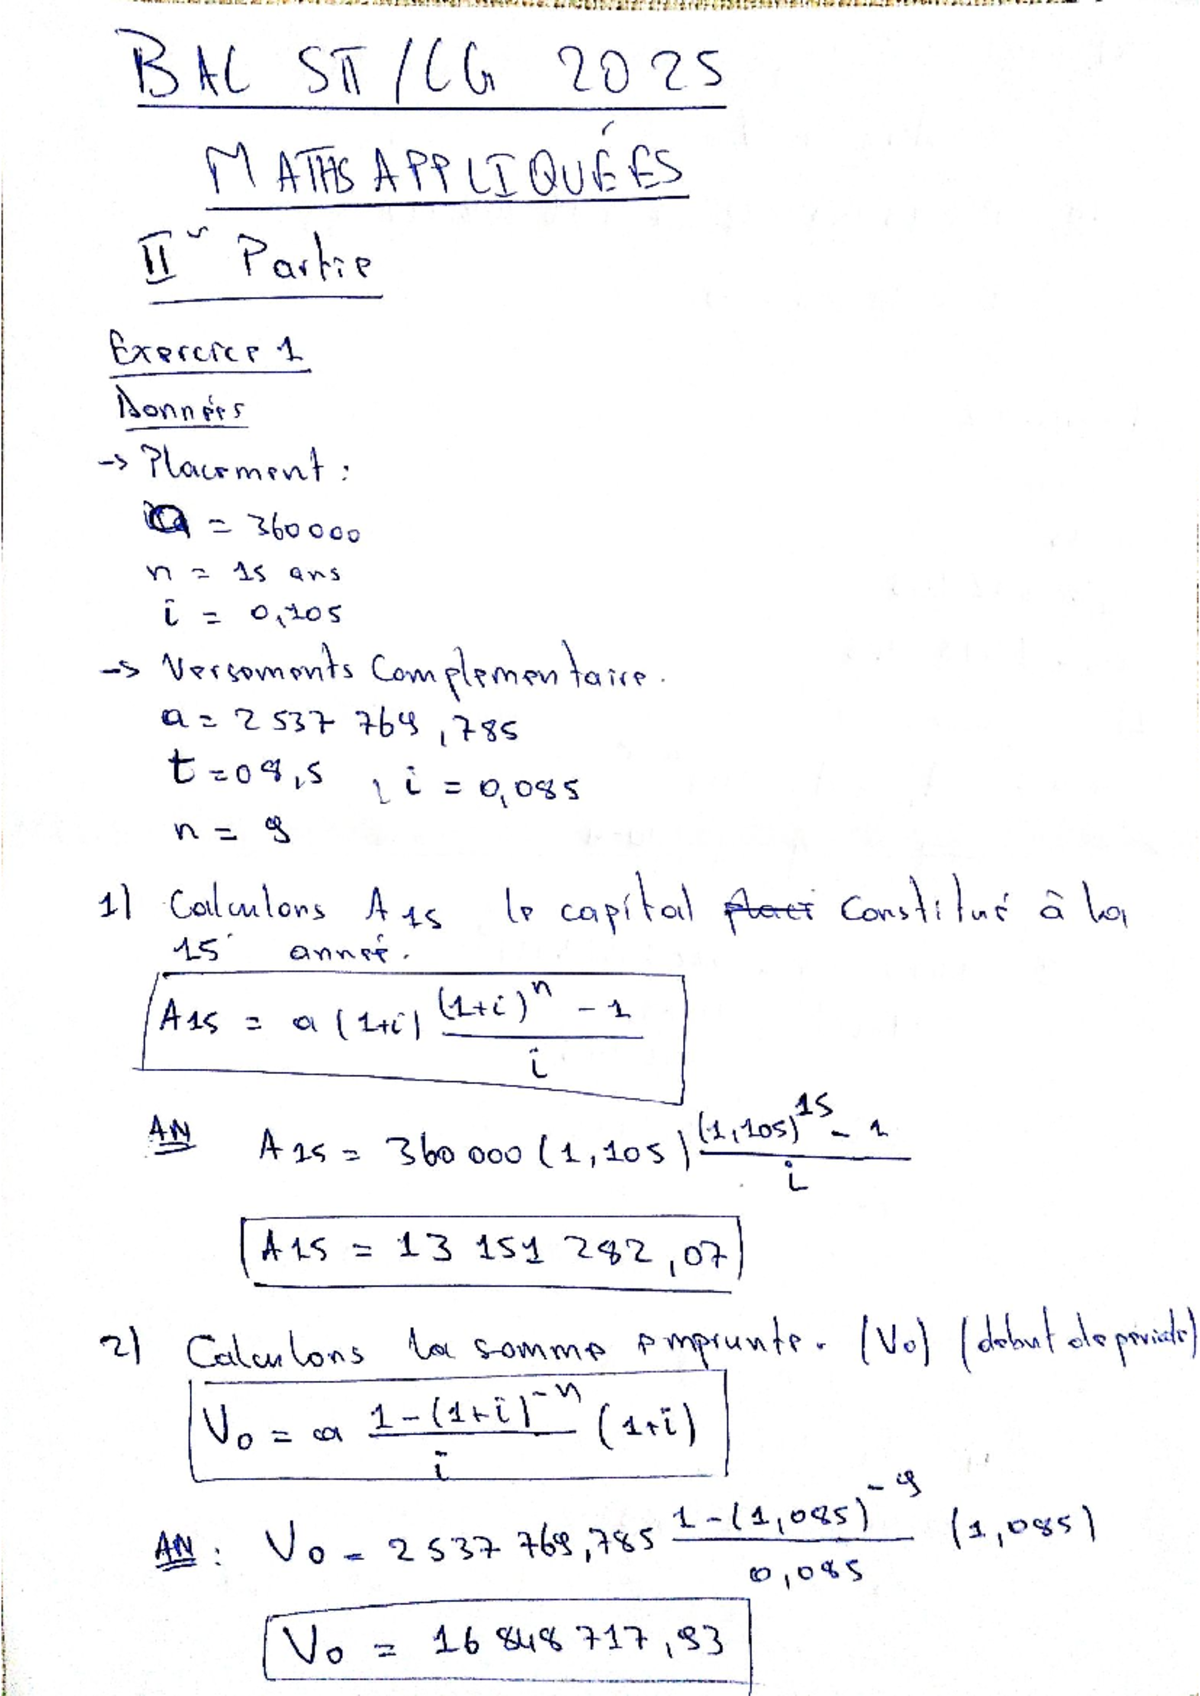 BAC STT/CG 2025
MATHS APPLIQUÉES
II Partie
Exercice 1
Données
-> Placement :
a = 360 000
n = 15 ans
i = 0,105
-> Versements Complementaire.
a = 2 537 769,785
t = 08,5 , i = 0,085
n = 9
1) Calculons A15 le capital placé Constitué à la
15 année.
A15 = a (1+i) \frac{(1+i)^n - 1}{i}
AN A15 = 360 000 (1,105) \frac{(1,105)^15 - 1}{i}
A15 = 13 151 282,07
2) Calculons la somme emprunte. (V0) (debut de periode)
V0 = a \frac{1-(1+i)^-n}{i} (1+i)
AN : V0 = 2 537 769,785 \frac{1-(1,085)^-9}{0,085} (1,085)
V0 = 16 848 717,93